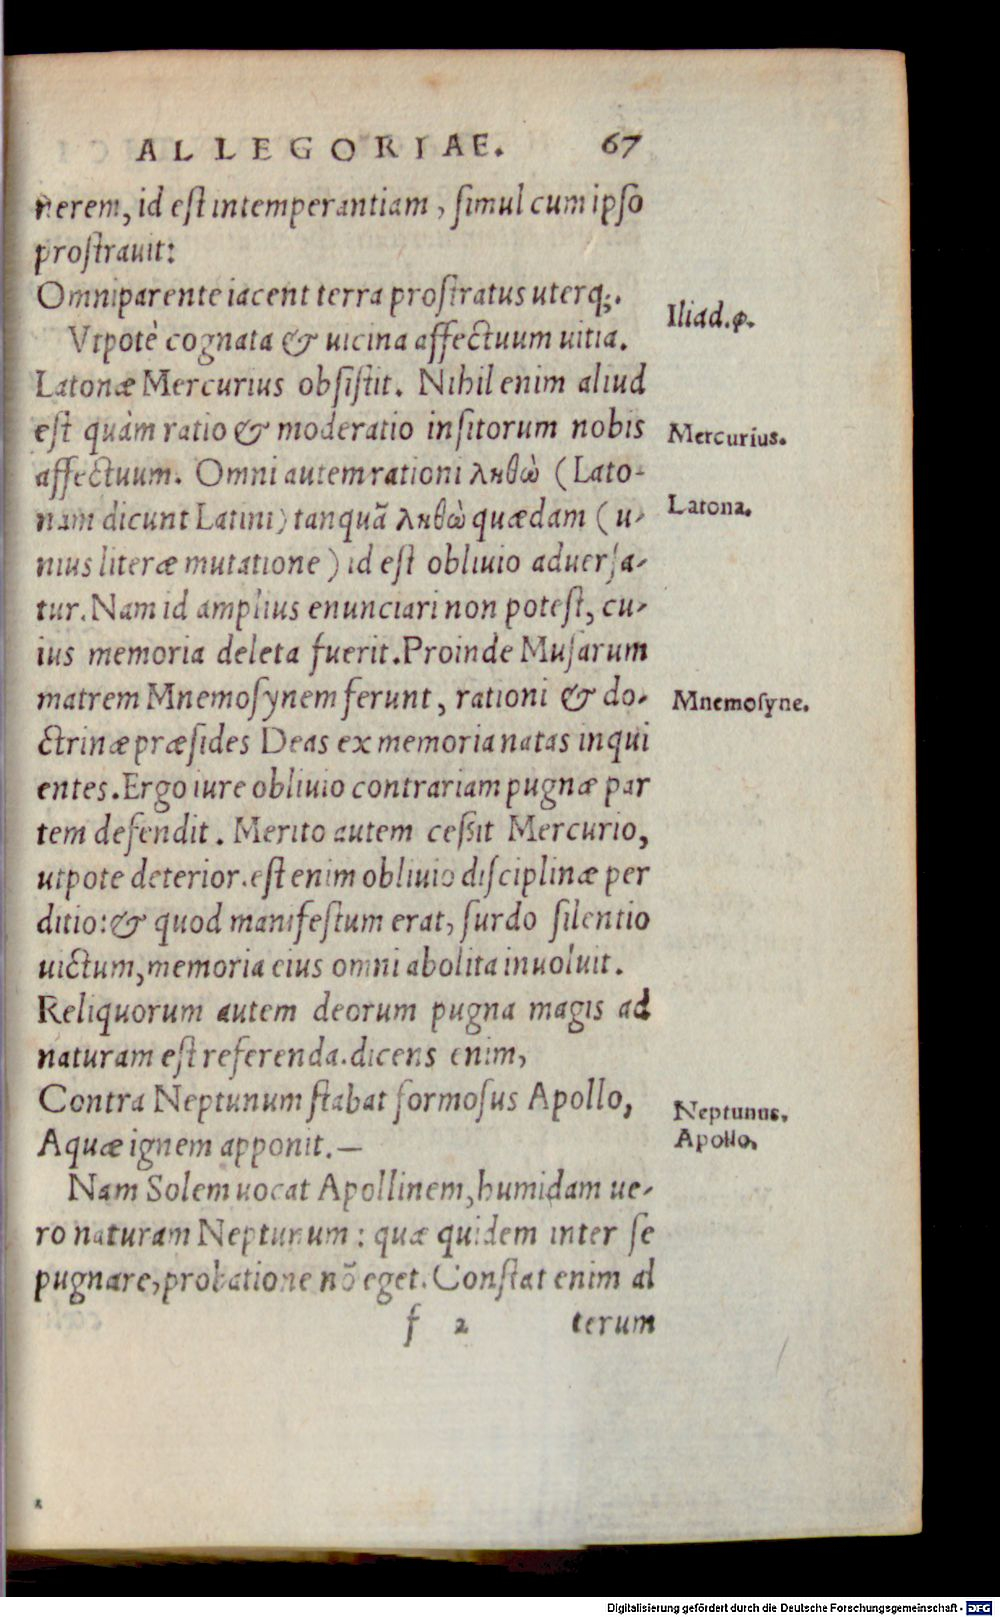 ALLEGORIAE. 67
nerem, id est intemperantiam, simul cum ipso
prostrauit:
Omniparente iacent terra prostratus uterq;.
Iliad.φ.
Vtpotè cognata & uicina affectuum uitia.
Latonæ Mercurius obsistit. Nihil enim aliud
est quàm ratio & moderatio insitorum nobis
Mercurius.
affectuum. Omni autem rationi ληθὼ (Lato-
nam dicunt Latini) tanquã ληθὼ quædam (u-
Latona.
nius literæ mutatione) id est obliuio aduersa-
tur. Nam id amplius enunciari non potest, cu-
ius memoria deleta fuerit. Proinde Musarum
matrem Mnemosynem ferunt, rationi & do-
Mnemosyne.
ctrinæ præsides Deas ex memoria natas inqui
entes. Ergo iure obliuio contrariam pugnæ par
tem defendit. Merito autem cessit Mercurio,
utpote deterior. est enim obliuio disciplinæ per
ditio: & quod manifestum erat, surdo silentio
uictum, memoria eius omni abolita inuoluit.
Reliquorum autem deorum pugna magis ad
naturam est referenda. dicens enim,
Contra Neptunum stabat formosus Apollo,
Neptunus.
Aquæ ignem apponit.—
Apollo.
Nam Solem uocat Apollinem, humidam ue-
ro naturam Neptunum: quæ quidem inter se
pugnare, probatione nõ eget. Constat enim al
f 2 terum
Digitalisierung gefördert durch die Deutsche Forschungsgemeinschaft - DFG